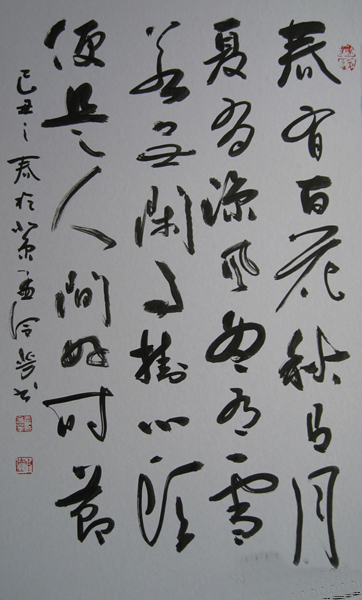 春有百花秋有月
夏有凉风冬有雪
若无閑事掛心頭
便是人間好时節
己丑之春於